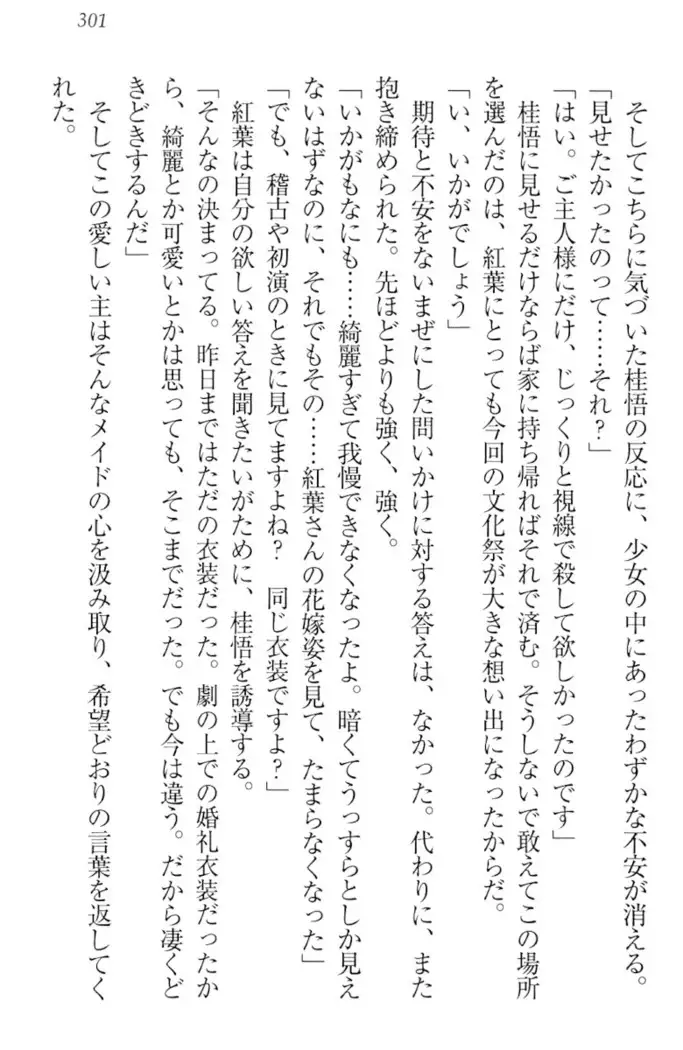 301
そしてこちらに気づいた桂悟の反応に、少女の中にあったわずかな不安が消える。
「見せたかったのって……それ?」
「はい。ご主人様にだけ、じっくりと視線で殺して欲しかったのです」
桂悟に見せるだけならば家に持ち帰ればそれで済む。そうしないで敢えてこの場所
を選んだのは、紅葉にとっても今回の文化祭が大きな想い出になったからだ。
「い、いかがでしょう」
期待と不安をないまぜにした問いかけに対する答えは、なかった。代わりに、また
抱き締められた。先ほどよりも強く、強く。
「いかがもなにも……綺麗すぎて我慢できなくなったよ。暗くてうっすらとしか見え
ないはずなのに、それでもその……紅葉さんの花嫁姿を見て、たまらなくなった」
「でも、稽古や初演のときに見てますよね? 同じ衣装ですよ?」
紅葉は自分の欲しい答えを聞きたいがために、桂悟を誘導する。
「そんなの決まってる。昨日まではただの衣装だった。劇の上での婚礼衣装だったか
ら、綺麗とか可愛いとかは思っても、そこまでだった。でも今は違う。だから凄くど
きどきするんだ」
そしてこの愛しい主はそんなメイドの心を汲み取り、希望どおりの言葉を返してく
れた。